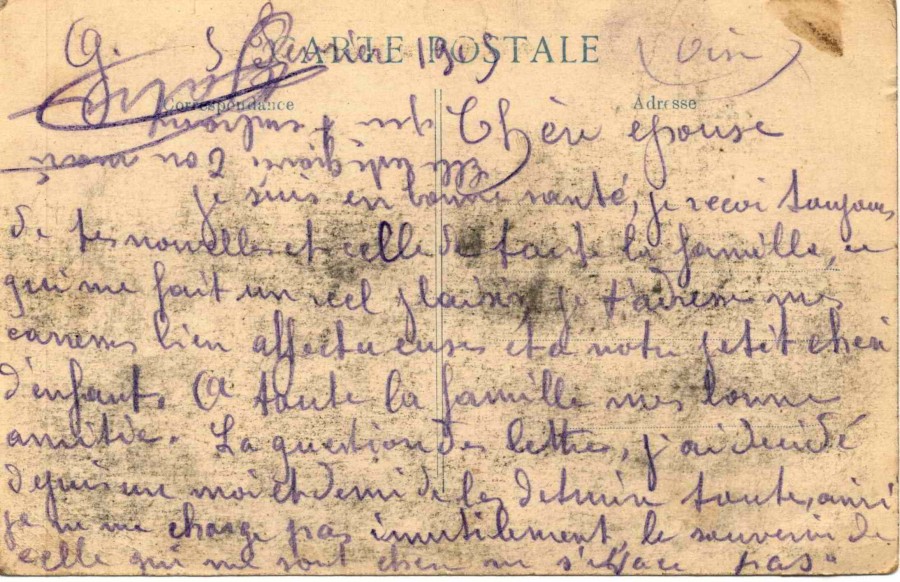 G. 5 Fevrier 1915
CARTE POSTALE
Correspondance
Adresse
Chère epouse
je suis en bonne santé, je recoi toujours
de tes nouvelles et celle de toute la famille, ce
qui me fait un reel plaisir, je t'adresse mes
caresses bien affectueuses et a notre petit cheri
d'enfant. A toute la famille mes bonne
amitié. La question des lettres, j'ai decidé
depuis un moi et demi de les detruire toute, ainsi
je ne me charge pas inutilement, le souvenir de
celle qui me sont chere ne s'efface pas.